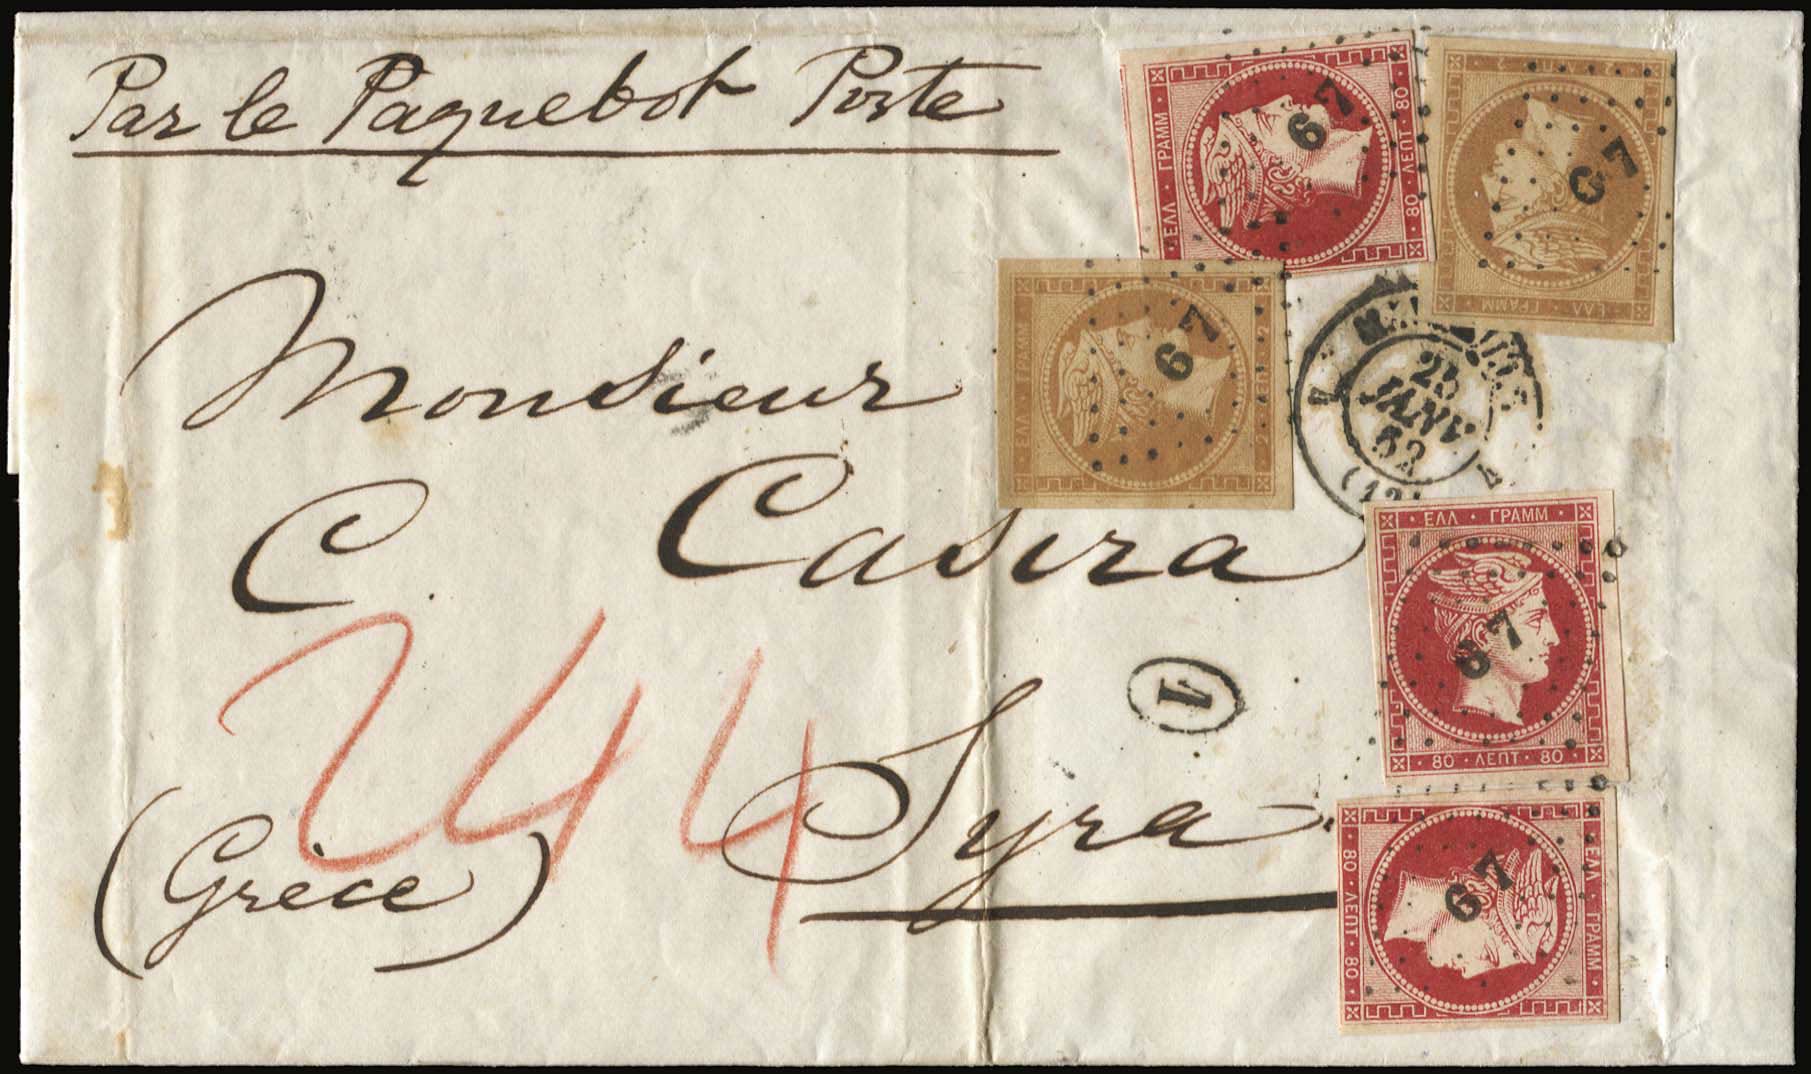 Par le Paquebot Poste
Monsieur
C. Casira
Syra
(Grèce)
244
1
ΕΛΛ · ΓΡΑΜΜ
80 · ΛΕΠΤ · 80
67
2 · ΛΕΠ · 2
ΕΛΛ · ΓΡΑΜΜ
67
ΕΛΛ · ΓΡΑΜΜ
2 · ΛΕΠ · 2
67
23
JANV.
52
(12)
ΕΛΛ · ΓΡΑΜΜ
67
80 · ΛΕΠΤ · 80
ΕΛΛ · ΓΡΑΜΜ
67
80 · ΛΕΠΤ · 80